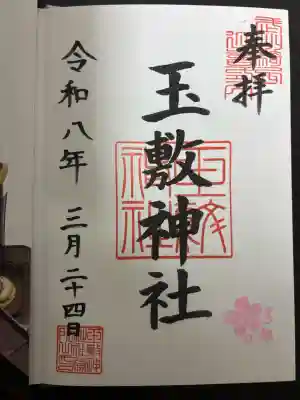 奉拝
玉敷神社
令和八年 三月二十四日